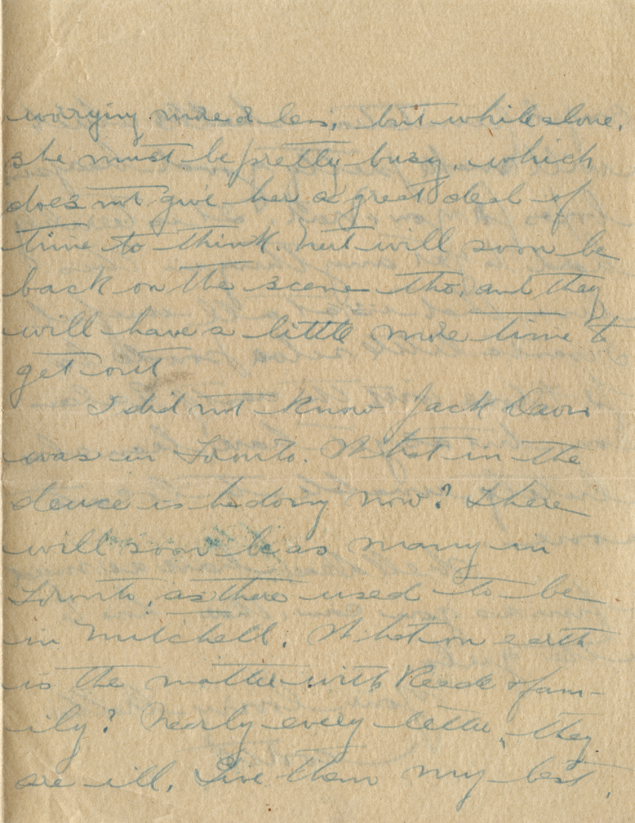 worrying more or less, but while alone,
she must be pretty busy, which
does not give her a great deal of
time to think. will soon be
back on the scene tho, and they
will have a little more time to
get out
I did not know Jack Davis
was in Toronto. What in the
deuce is he doing now? There
will soon be as many in
Toronto, as there used to be
in Mitchell. What on earth
is the matter with Reed & fam-
ily? Nearly every letter, they
are ill. Give them my best,